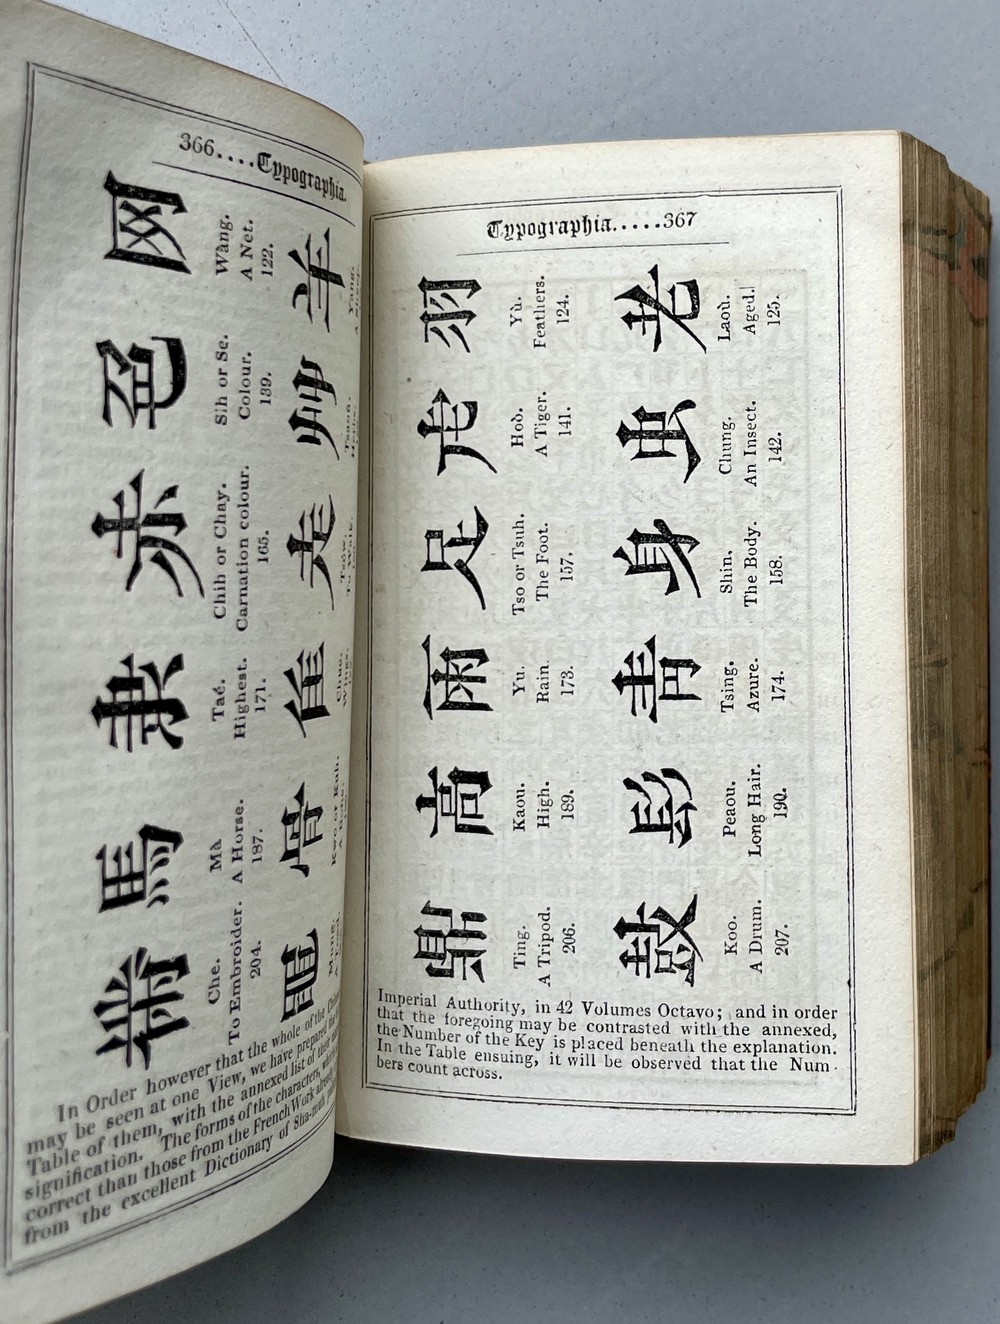 366....Typographia.
网
Wàng.
A Net.
122.
色
Sih or Se.
Colour.
139.
赤
Chih or Chay.
Carnation colour.
165.
隶
Taé.
Highest.
171.
馬
Mà
A Horse.
187.
黹
Che.
To Embroider.
204.
羊
Yang.
艸
Tsaoú.
Herbs.
走
Tsów.
To Walk.
隹
Chue.
Wings.
骨
Kwo or Kuh.
黽
Mung.
In Order however that the whole of the
may be seen at one View, we have prepared
Table of them, with the annexed list of their
signification. The forms of the characters,
correct than those from the French Work
from the excellent Dictionary of Sha-muh
Typographia.....367
羽
Yù.
Feathers.
124.
虍
Hoò.
A Tiger.
141.
足
Tso or Tsuh.
The Foot.
157.
雨
Yu.
Rain.
173.
高
Kaou.
High.
189.
鼎
Ting.
A Tripod.
206.
老
Laoù.
Aged.
125.
虫
Chung.
An Insect.
142.
身
Shin.
The Body.
158.
青
Tsing.
Azure.
174.
髟
Peaou.
Long Hair.
190.
鼓
Koo.
A Drum.
207.
Imperial Authority, in 42 Volumes Octavo; and in order
that the foregoing may be contrasted with the annexed,
the Number of the Key is placed beneath the explanation.
In the Table ensuing, it will be observed that the Num-
bers count across.